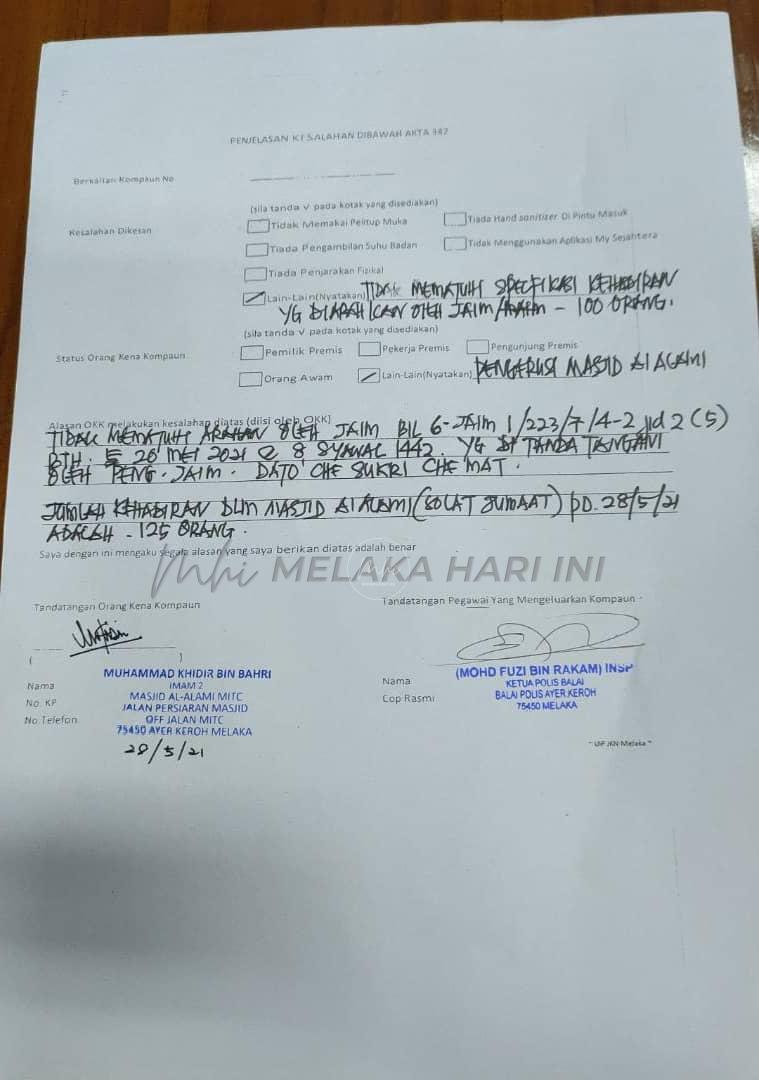 PENJELASAN KESALAHAN DIBAWAH AKTA 342
Berkaitan Kompaun No
(sila tanda √ pada kotak yang disediakan)
Kesalahan Dikesan
Tidak Memakai Pelitup Muka
Tiada Hand sanitizer Di Pintu Masuk
Tiada Pengambilan Suhu Badan
Tidak Menggunakan Aplikasi My Sejahtera
Tiada Penjarakan Fizikal
Lain-Lain(Nyatakan) TIDAK MEMATUHI SPECFIKASI KEHADIRAN
YG DIARAHKAN OLEH JAIM/ - 100 ORANG.
(sila tanda √ pada kotak yang disediakan)
Status Orang Kena Kompaun
Pemilik Premis
Pekerja Premis
Pengunjung Premis
Orang Awam
Lain-Lain(Nyatakan) PENGERUSI MASJID AL ALAMI
Alasan OKK melakukan kesalahan diatas (diisi oleh OKK)
TIDAK MEMATUHI ARAHAN OLEH JAIM BIL 6-JAIM 1/223/7/4-2 Jld 2 (5)
BTH. 26 MEI 2021 @ 8 SYAWAL 1442. YG DI TANDA TANGANI
OLEH PENG. JAIM. DATO' CHE SUKRI CHE MAT.
JUMLAH KEHADIRAN DLM MASJID AL ALAMI (SOLAT JUMAAT) PD. 28/5/21
ADALAH - 125 ORANG.
Saya dengan ini mengaku segala alasan yang saya berikan diatas adalah benar
Mhi MELAKA HARI INI
Tandatangan Orang Kena Kompaun
Tandatangan Pegawai Yang Mengeluarkan Kompaun
( )
Nama
No. KP
No.Telefon
MUHAMMAD KHIDIR BIN BAHRI
IMAM 2
MASJID AL-ALAMI MITC
JALAN PERSIARAN MASJID
OFF JALAN MITC
75450 AYER KEROH MELAKA
28/5/21
Nama
Cop Rasmi
(MOHD FUZI BIN RAKAM) INSP
KETUA POLIS BALAI
BALAI POLIS AYER KEROH
75450 MELAKA
JKN Melaka